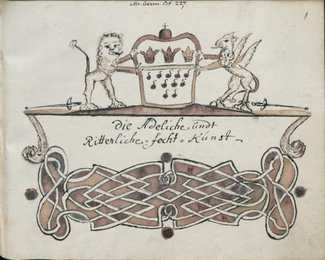 Ms. Germ. Oct. 227.
1
Die Adeliche undt
Ritterliche fecht-Kunst